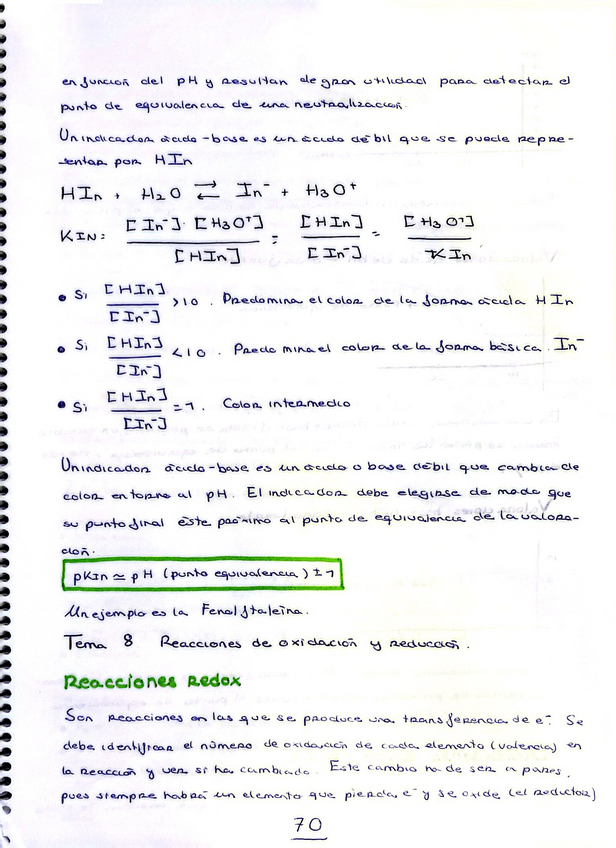 en función del pH y resultan de gran utilidad para detectar el
punto de equivalencia de una neutralización.
Un indicador ácido-base es un ácido débil que se puede repre-
sentar por HIn
HIn + H₂O ⇄ In⁻ + H₃O⁺
KIN: [In⁻]·[H₃O⁺] / [HIn] = [HIn] / [In⁻] = [H₃O⁺] / KIn
• Si [HIn] / [In⁻] > 10. Predomina el color de la forma ácida HIn
• Si [HIn] / [In⁻] < 10. Predomina el color de la forma básica. In⁻
• Si [HIn] / [In⁻] = 1. Color intermedio
Un indicador ácido-base es un ácido o base débil que cambia de
color entorno al pH. El indicador debe elegirse de modo que
su punto final este próximo al punto de equivalencia de la valora-
ción.
pKIn ≃ pH (punto equivalencia) ± 1
Un ejemplo es la Fenolftaleína.
Tema 8 Reacciones de oxidación y reducción.
Reacciones Redox
Son reacciones en las que se produce una transferencia de e⁻. Se
debe identificar el número de oxidación de cada elemento (valencia) en
la reacción y ver si ha cambiado. Este cambio ha de ser a pares,
pues siempre habrá un elemento que pierda e⁻ y se oxide (el reductor)
70